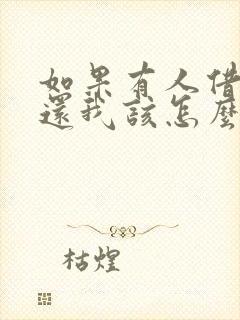 如果有人借
還我該怎麼
枯煌